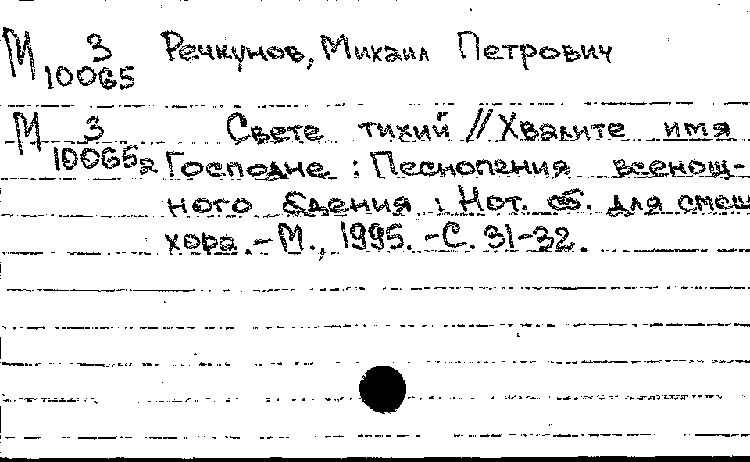 М 3 Речкунов, Михаил Петрович
10065
М 3 Свете тихий // Хвалите имя
10065₂ Господне : Песнопения всенощ-
ного бдения : Нот. сб. для смеш
хора. - М., 1995. - С. 31-32.